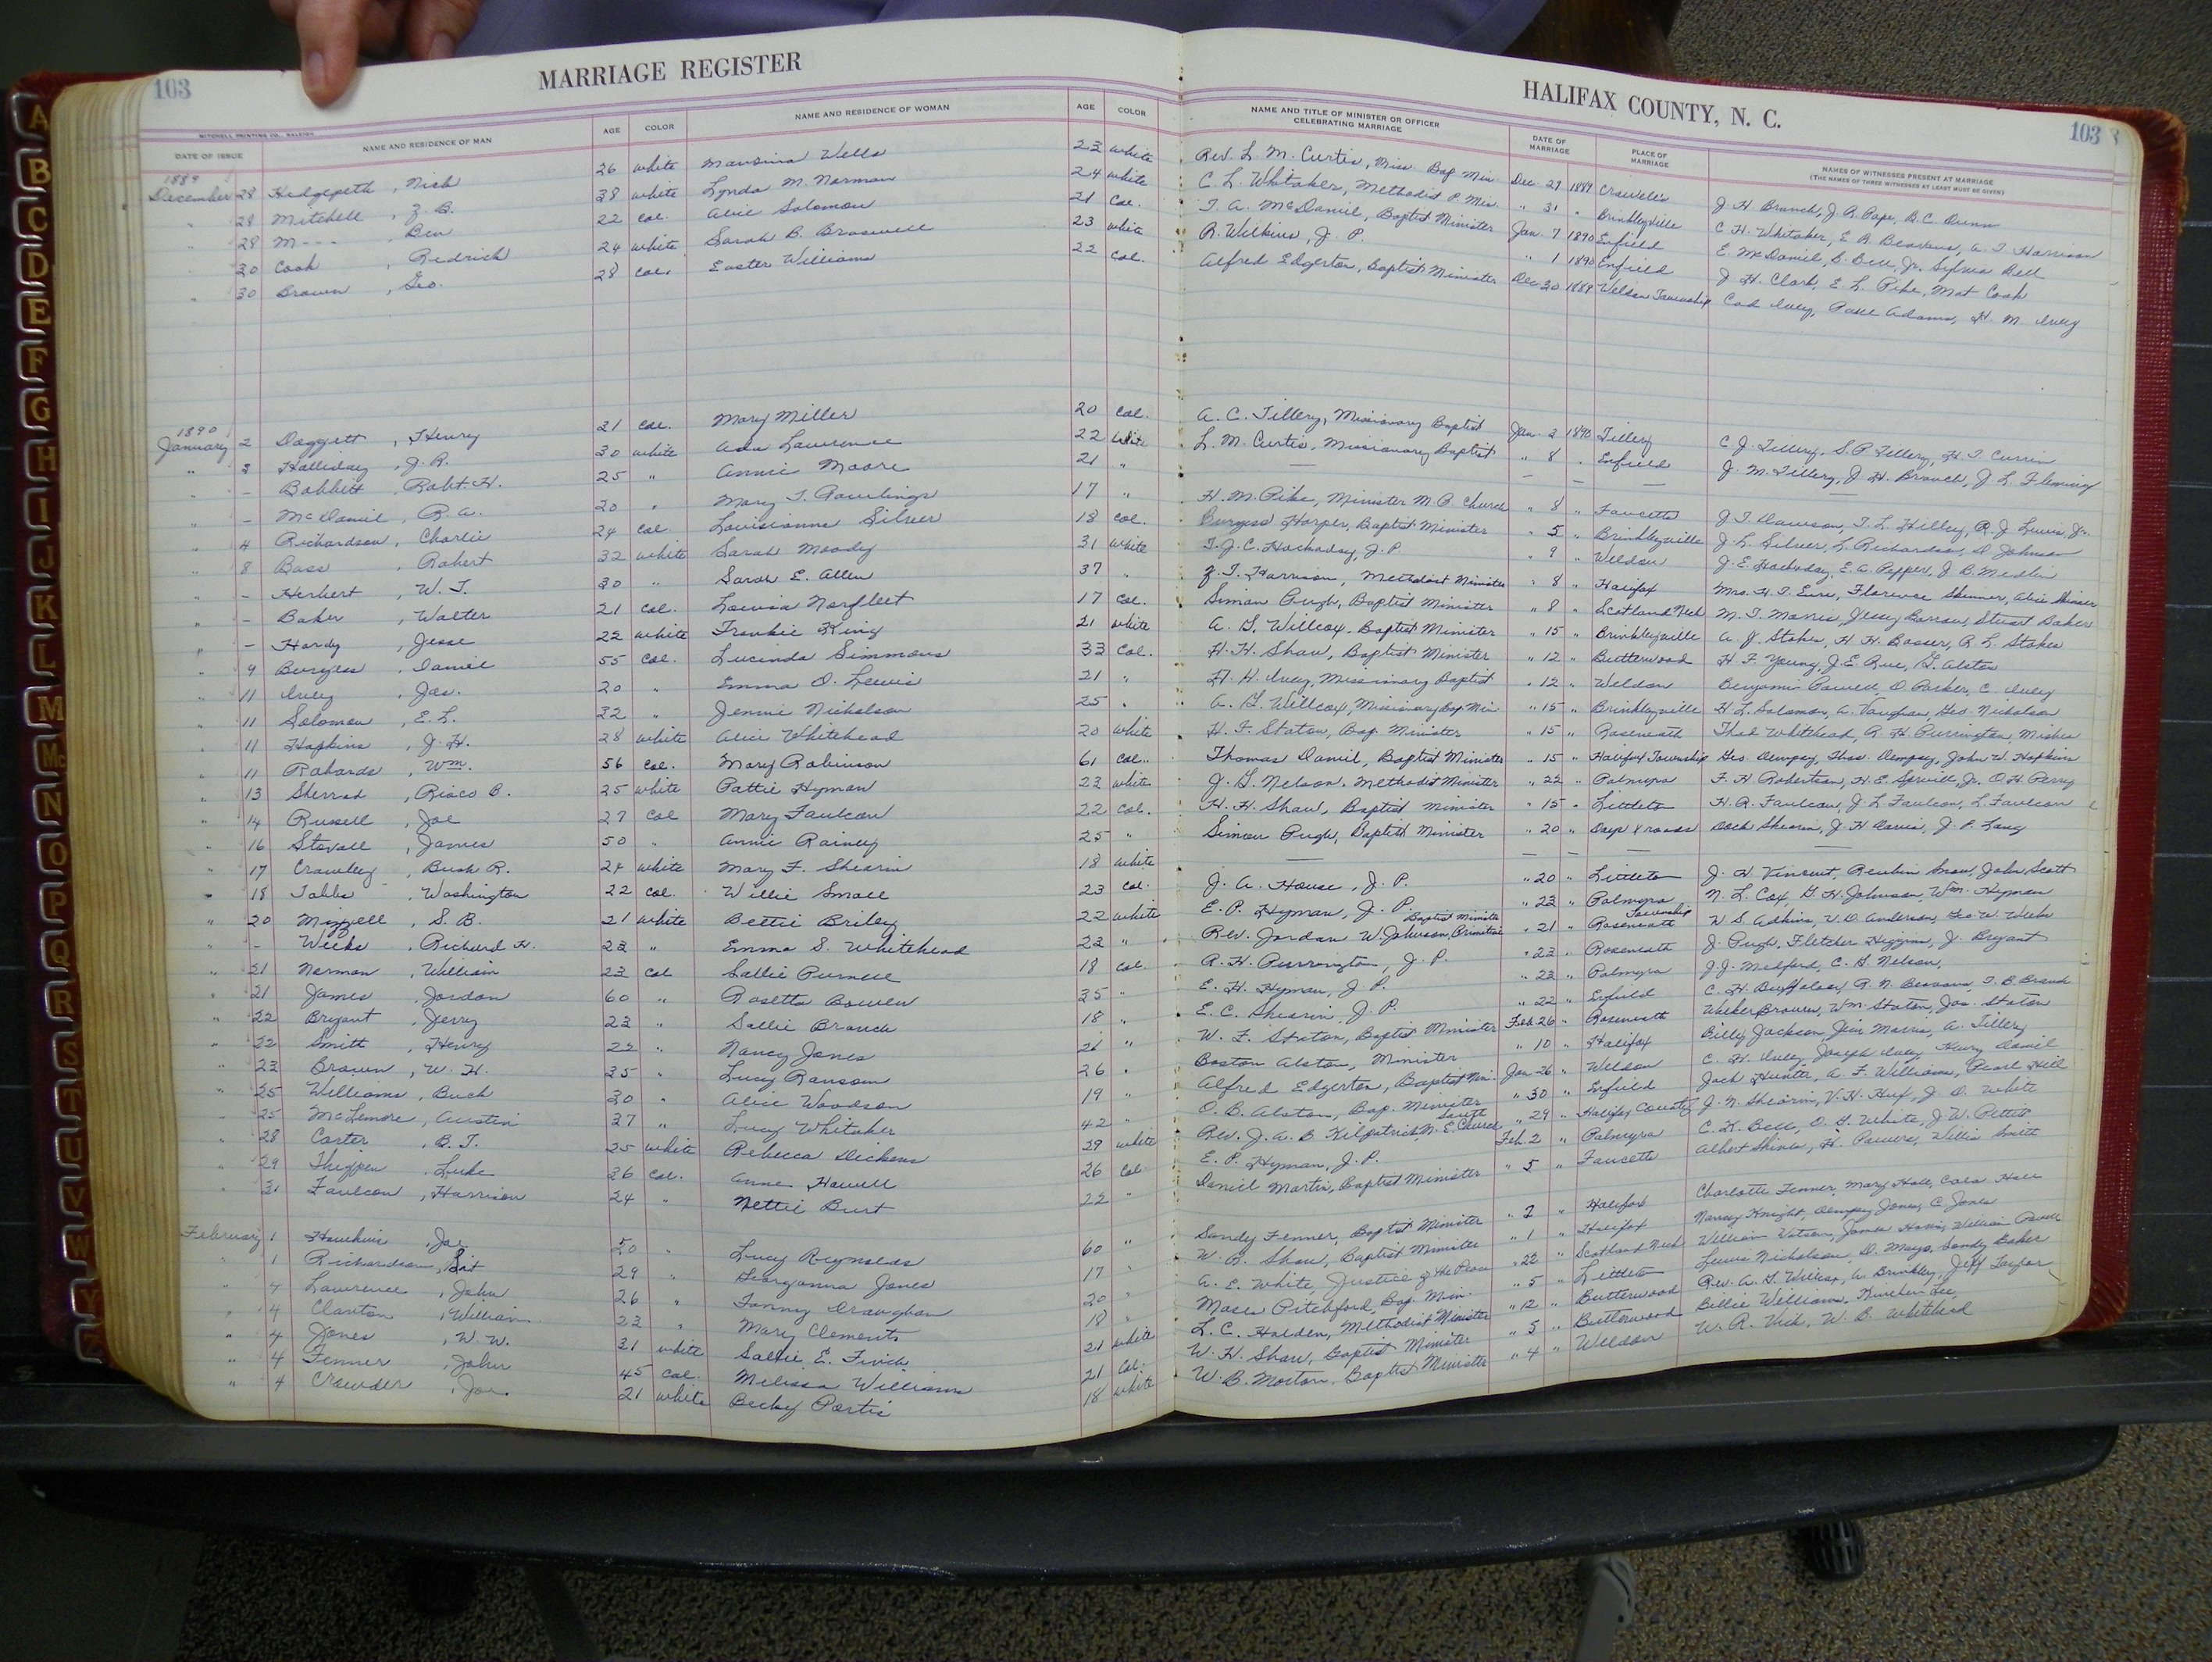 103 MARRIAGE REGISTER HALIFAX COUNTY, N. C. 103
MITCHELL PRINTING CO., RALEIGH
DATE OF ISSUE NAME AND RESIDENCE OF MAN AGE COLOR NAME AND RESIDENCE OF WOMAN AGE COLOR NAME AND TITLE OF MINISTER OR OFFICER CELEBRATING MARRIAGE DATE OF MARRIAGE PLACE OF MARRIAGE NAMES OF WITNESSES PRESENT AT MARRIAGE (THE NAMES OF THREE WITNESSES AT LEAST MUST BE GIVEN)
1889
December 28 Hedgepeth, Nick 26 white Wells 23 white Rev. L. M. Curtis, Miss. Bap. Min. Dec. 29 1889 Crowells J. H. Branch, J. R. Pope, B. C. Dunn
" 28 Mitchell, Z. B. 38 white Lynda M. Norman 24 white C. L. Whitaker, Methodist P. Min. " 31 " Brinkleyville C. H. Whitaker, E. R. Beavans, A. T. Harrison
" 28 M---, Ben 22 col. Alice Solomon 21 col. T. A. McDaniel, Baptist Minister Jan. 7 1890 Enfield E. McDaniel, S. Bell, Jr. Sylvia Bell
" 30 Cook, Redrick 24 white Sarah B. Braswell 23 white R. Wilkins, J. P. " 1 1890 Enfield J. H. Clark, E. L. Pike, Mat Cook
" 30 Brown, Geo. 28 col. Easter Williams 22 col. Alfred Edgerton, Baptist Minister Dec. 30 1889 Weldon Township Ivey, Adams, H. M. Ivey
1890
January 2 Daggett, Henry 21 col. Mary Miller 20 col. A. C. Tillery, Missionary Baptist Jan. 2 1890 Tillery C. J. Tillery, S. P. Tillery, H. T. Currin
" 3 Halliday, J. R. 30 white Ada Lawrence 22 white L. M. Curtis, Missionary Baptist " 8 " Enfield J. M. Tillery, J. H. Branch, J. L. Fleming
" - Babbitt, Robt. H. 25 " Annie Moore 21 " — — — — —
" - McDaniel, R. A. 20 " Mary T. Rawlings 17 " H. M. Pike, Minister M. P. Church " 8 " Faucetts J. T. Dawson, T. L. Hilley, R. J. Lewis, Jr.
" 4 Richardson, Charlie 24 col. Louisianna Silver 18 col. Burgess Harper, Baptist Minister " 5 " Brinkleyville J. L. Silver, L. Richardson, D. Johnson
" 8 Bass, Robert 32 white Sarah Moody 31 white T. J. C. Hockaday, J. P. " 9 " Weldon J. E. Hockaday, E. A. Pepper, J. B. Medlin
" - Herbert, W. T. 30 " Sarah E. Allen 37 " Z. T. Harrison, Methodist Minister " 8 " Halifax Mrs. H. T. Florence Skinner, Alice Skinner
" - Baker, Walter 21 col. Louisa Norfleet 17 col. Simon Pugh, Baptist Minister " 8 " Scotland Neck M. T. Morris, Jessy Barrow, Stuart Baker
" - Hardy, Jesse 22 white Frankie King 21 white A. G. Willcox, Baptist Minister " 15 " Brinkleyville A. J. Stokes, H. H. Bosser, R. L. Stokes
" 9 Burgess, Daniel 55 col. Lucinda Simmons 33 col. H. H. Shaw, Baptist Minister " 12 " Butterwood H. F. Young, J. E. Rue, G. Alston
" 11 Ivey, Jas. 20 " Emma O. Lewis 21 " H. H. Ivey, Missionary Baptist " 12 " Weldon Benjamin Powell, D. Parker, C. Ivey
" 11 Solomon, E. L. 32 " Jennie Nicholson 25 " A. G. Willcox, Missionary Bap. Min. " 15 " Brinkleyville H. L. Solomon, A. Vaughan, Geo. Nicholson
" 11 Hopkins, J. H. 28 white Alice Whitehead 20 white H. F. Staton, Bap. Minister " 15 " Roseneath Whitehead, R. H. Purrington,
" 11 Wm. 56 col. Mary Robinson 61 col. Thomas Daniel, Baptist Minister " 15 " Halifax Township Geo. Dempsy, Thos. Dempsy, John W. Hopkins
" 13 Sherrod, B. 25 white Pattie Hyman 23 white J. G. Nelson, Methodist Minister " 22 " Palmyra F. H. Robertson, H. E. Spruill, Jr. O. H. Perry
" 14 Russell, Joe 27 col Mary Faulcon 22 col. H. H. Shaw, Baptist Minister " 15 " Littleton H. R. Faulcon, J. L. Faulcon, L. Faulcon
" 16 Stovall, James 50 " Annie Rainey 25 " Simon Pugh, Baptist Minister " 20 " Days X roads Dock Shearin, J. H. Davis, J. P. Long
" 17 Crawley, Bush R. 24 white Mary F. Shearin 18 white — — — — —
" 18 Tabbs, Washington 22 col. Willie Small 23 col. J. A. House, J. P. " 20 " Littleton J. H. Vincent, Reubin Snow, John Scott
" 20 Mizzell, S. B. 21 white Bettie Briley 22 white E. P. Hyman, J. P. " 22 " Palmyra N. L. Cox, G. H. Johnson, Wm. Hyman
" - Weeks, Richard H. 22 " Emma S. Whitehead 22 " Rev. Jordan W. Johnson, Primitive Baptist Minister " 21 " Roseneath Township W. S. Adkins, V. D. Anderson, Geo. W. Weeks
" 21 Norman, William 23 col Sallie Purnell 18 col. R. H. Purrington, J. P. " 23 " Roseneath J. Pugh, Fletcher Higgins, J. Bryant
" 21 James, Jordan 60 " Rosetta Bowen 35 " E. H. Hyman, J. P. " 22 " Palmyra J. J. Medford, C. G. Nelson,
" 22 Bryant, Jerry 23 " Sallie Branch 18 " E. C. Shearin, J. P. " 22 " Enfield C. H. R. N. Beavans, T. B. Branch
" 22 Smith, Henry 22 " Nancy Jones 21 " W. F. Staton, Baptist Minister Feb. 26 " Roseneath Brown, Wm. Staton, Jas. Staton
" 23 Brown, W. H. 35 " Lucy Ransom 26 " Boston Alston, Minister " 10 " Halifax Billy Jackson, Jim Morris, A. Tillery
" 25 Williams, Buck 30 " Alice Woodson 19 " Alfred Edgerton, Baptist Min. Jan 26 " Weldon C. H. Ivey, Joseph Ivey, Henry Daniel
" 25 McLemore, Austin 37 " Lucy Whitaker 42 " O. B. Alston, Bap. Minister " 30 " Enfield Jack Hunter, A. F. Williams, Pearl Hill
" 28 Carter, B. T. 25 white Rebecca Dickens 29 white Rev. J. A. B. Kilpatrick, M. E. Church South " 29 " Halifax County J. N. Shearin, V. H. Huf, J. D. White
" 29 Thigpen, Luke 36 col. Anne Howell 26 col E. P. Hyman, J. P. Feb. 2 " Palmyra C. H. Bell, O. G. White, J. W. Pettit
" 31 Faulcon, Harrison 24 " Nettie Burt 22 " Daniel Martin, Baptist Minister " 5 " Faucetts Albert H. Powers, Willis Smith
February 1 Hawkins, Joe 50 " Lucy Reynolds 60 " Sandy Fenner, Baptist Minister " 2 " Halifax Charlotte Fenner, Mary Hall, Cora Hall
" 1 Richardson, 29 " Georganna Jones 17 " W. R. Shaw, Baptist Minister " 1 " Halifax Nancy Knight, Dempsy Jones, C. Jones
" 4 Lawrence, John 26 " Fanny Draughan 20 " A. E. White, Justice of the Peace " 22 " Scotland Neck William Watson, James Harris, William Powell
" 4 Clanton, William 23 " Mary Clements 18 " Moses Pitchford, Bap. Min. " 5 " Littleton Lewis Nicholson, D. Mayo, Sandy Baker
" 4 Jones, W. W. 31 white Sallie E. Finch 21 white L. C. Holden, Methodist Minister " 12 " Butterwood Rev. A. G. Willcox, A. Brinkley, Jeff Taylor
" 4 Fenner, John 45 col. Melissa Williams 21 col. W. H. Shaw, Baptist Minister " 5 " Butterwood Billie Williams, Lee,
" 4 Crowder, Joe. 21 white Becky Portis 18 white W. B. Morton, Baptist Minister " 4 " Weldon W. R. Vick, W. B. Whitehead
A
B
C
D
E
F
G
H
I
J
K
L
M
Mc
N
O
P
Q
R
S
T
U
V
W
Y
Z